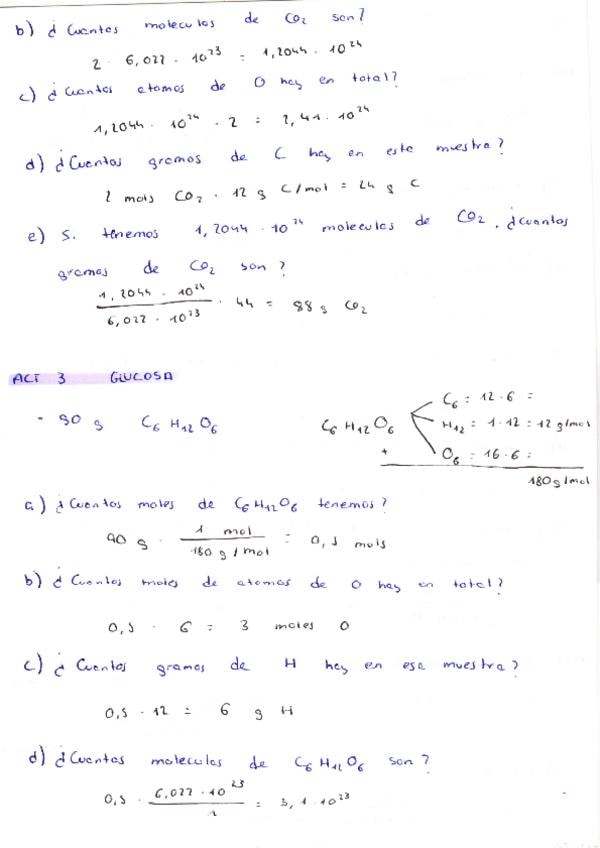 b) ¿Cuantas moleculas de CO₂ son?
2 · 6,022 · 10²³ = 1,2044 · 10²⁴
c) ¿Cuantos atomos de O hay en total?
1,2044 · 10²⁴ · 2 = 2,41 · 10²⁴
d) ¿Cuantos gramos de C hay en esta muestra?
2 mols CO₂ · 12 g C/mol = 24 g C
e) Si tenemos 1,2044 · 10²⁴ moleculas de CO₂, ¿cuantos
gramos de CO₂ son?
1,2044 · 10²⁴ / 6,022 · 10²³ · 44 = 88 g CO₂
ACT 3 GLUCOSA
- 90 g C₆H₁₂O₆
C₆H₁₂O₆
C₆ = 12 · 6 =
H₁₂ = 1 · 12 = 12 g/mol
+ O₆ = 16 · 6 =
180 g/mol
a) ¿Cuantos moles de C₆H₁₂O₆ tenemos?
90 g · 1 mol / 180 g/mol = 0,5 mols
b) ¿Cuantos moles de atomos de O hay en total?
0,5 · 6 = 3 moles O
c) ¿Cuantos gramos de H hay en esa muestra?
0,5 · 12 = 6 g H
d) ¿Cuantas moleculas de C₆H₁₂O₆ son?
0,5 · 6,022 · 10²³ / 1 = 3,1 · 10²³